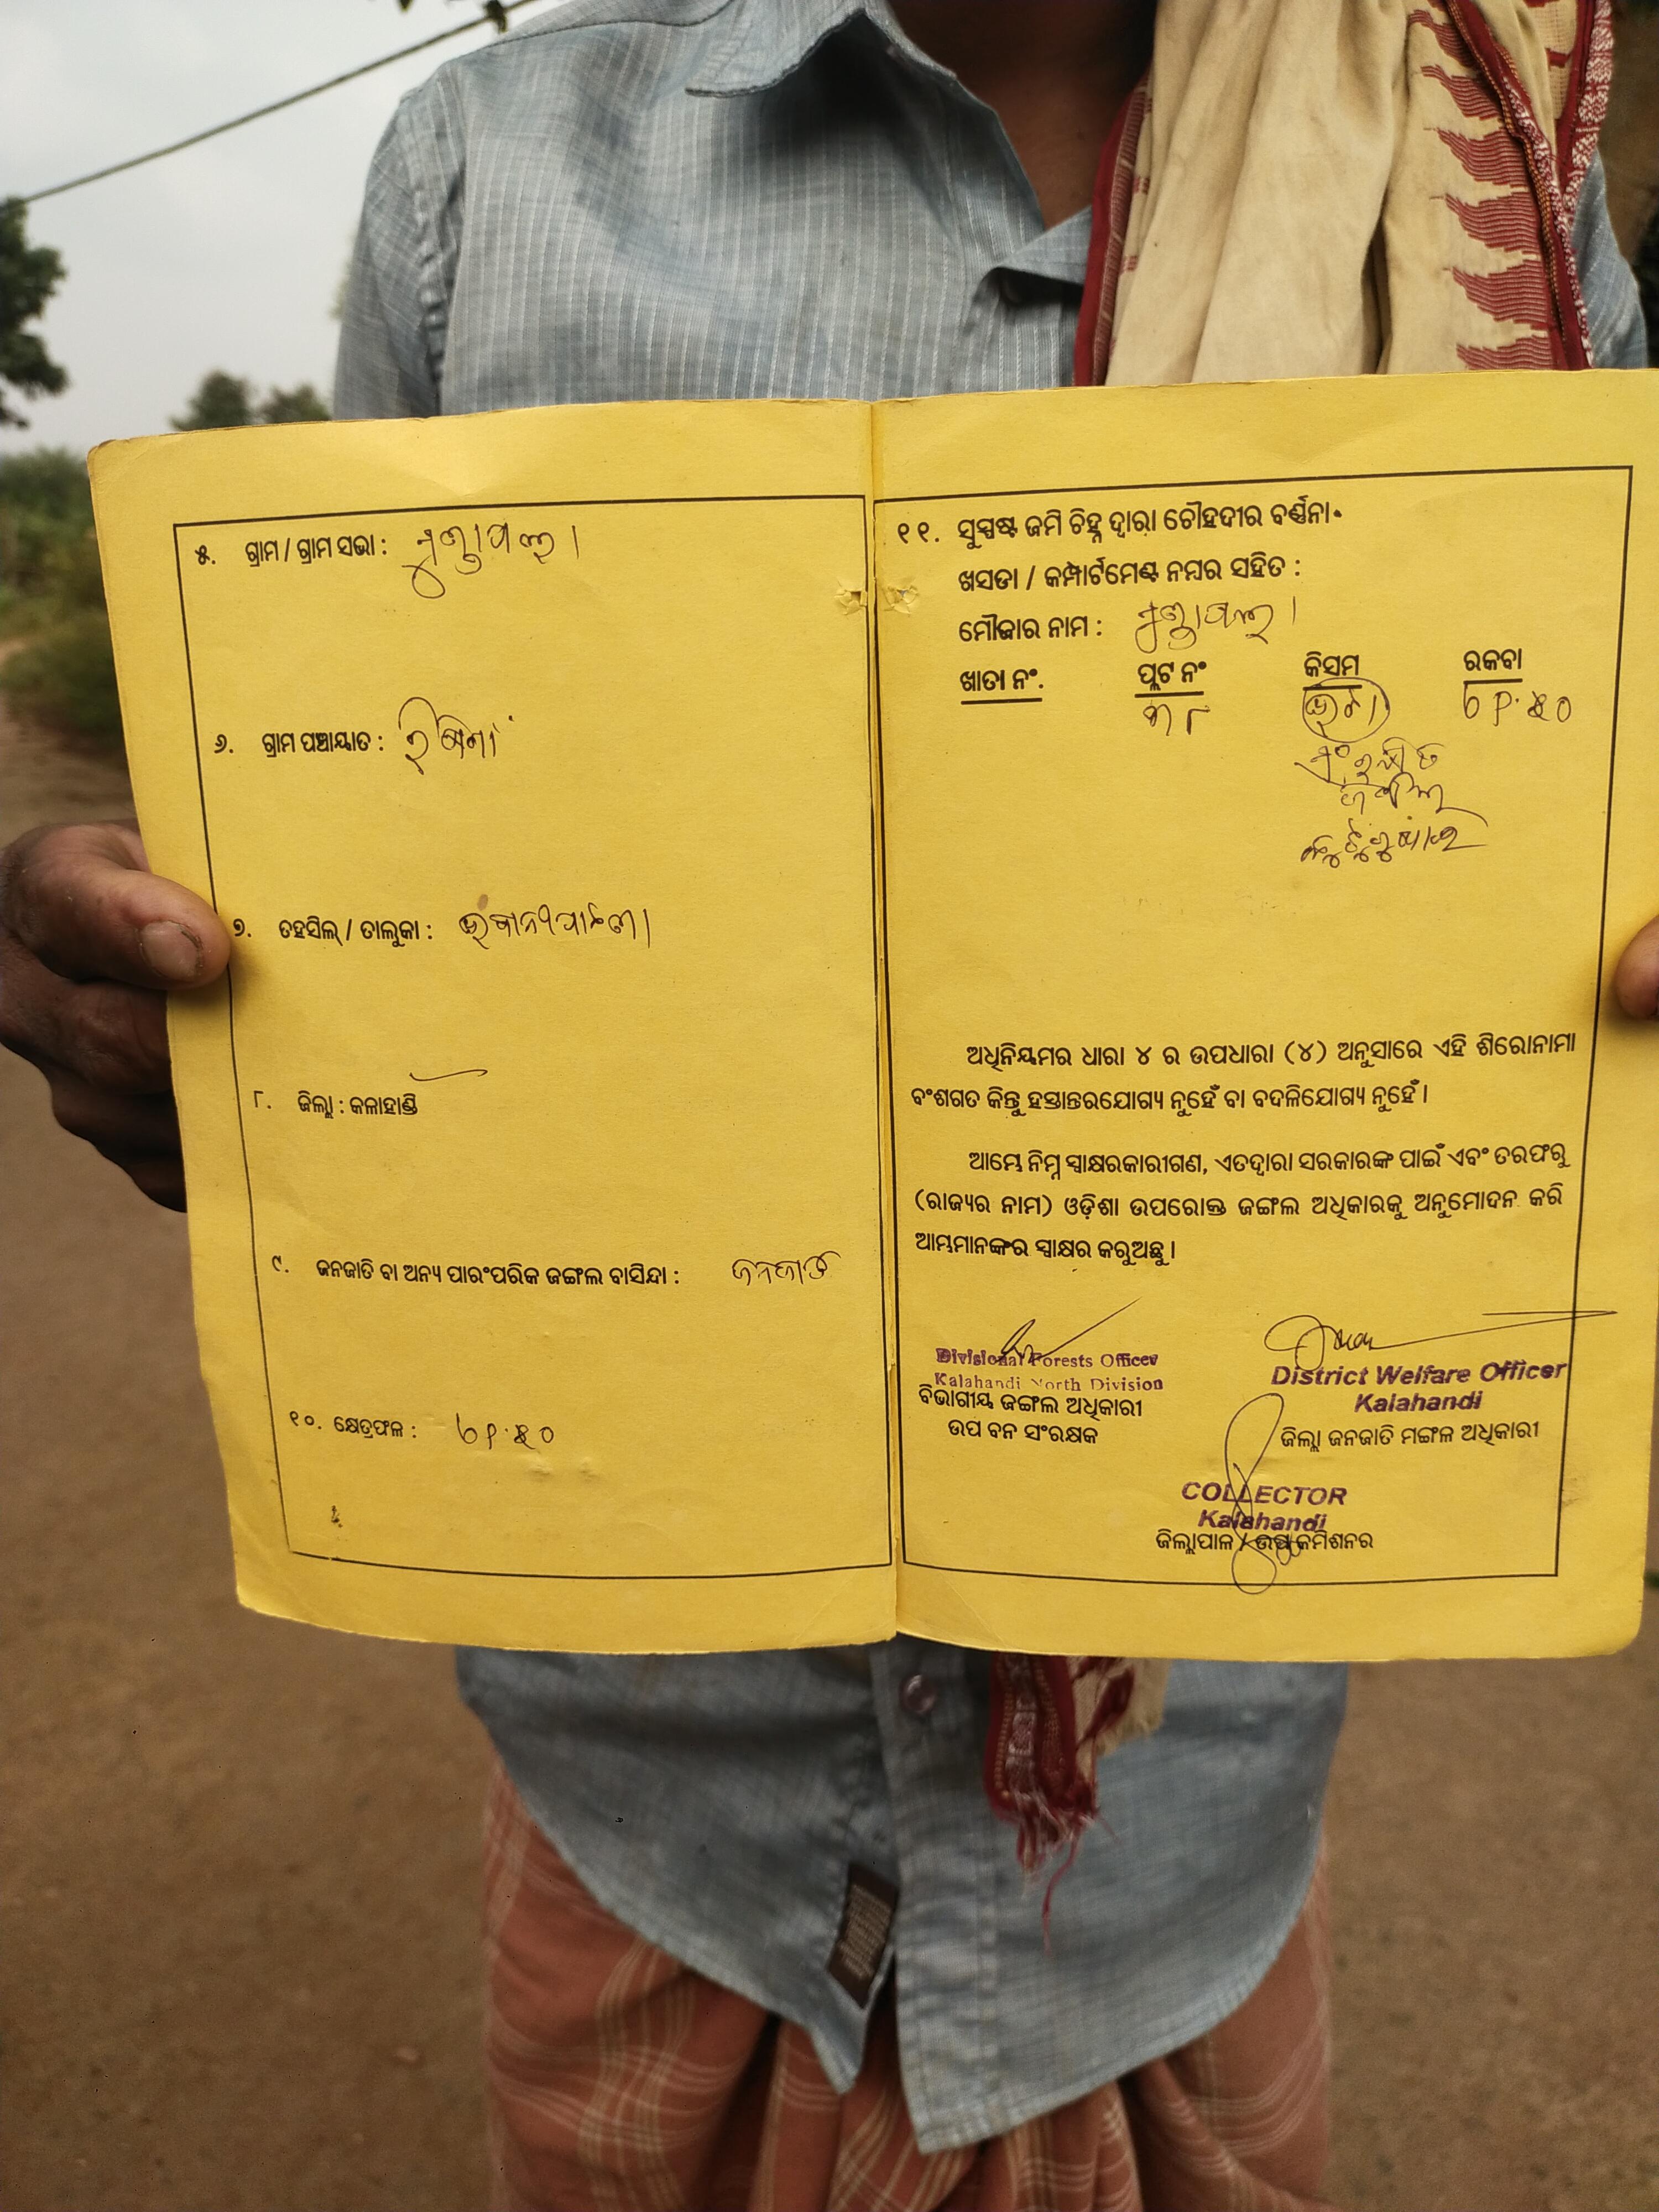 ୫. ଗ୍ରାମ / ଗ୍ରାମ ସଭା :
୬. ଗ୍ରାମ ପଞ୍ଚାୟାତ :
୭. ତହସିଲ୍ / ତାଲୁକା : ଭବାନୀପାଟଣା
୮. ଜିଲ୍ଲା : କଳାହାଣ୍ଡି
୯. ଜନଜାତି ବା ଅନ୍ୟ ପାରଂପରିକ ଜଙ୍ଗଲ ବାସିନ୍ଦା : ଜନଜାତି
୧୦. କ୍ଷେତ୍ରଫଳ :
୧୧. ସୁସ୍ପଷ୍ଟ ଜମି ଚିହ୍ନ ଦ୍ୱାରା ଚୌହଦୀର ବର୍ଣ୍ଣନା
ଖସଡା / କମ୍ପାର୍ଟମେଣ୍ଟ ନମ୍ବର ସହିତ :
ମୌଜାର ନାମ :
ଖାତା ନଂ. ପ୍ଲଟ ନଂ କିସମ ରକବା
ଅଧିନିୟମର ଧାରା ୪ ର ଉପଧାରା (୪) ଅନୁସାରେ ଏହି ଶିରୋନାମା
ବଂଶଗତ କିନ୍ତୁ ହସ୍ତାନ୍ତରଯୋଗ୍ୟ ନୁହେଁ ବା ବଦଳିଯୋଗ୍ୟ ନୁହେଁ।
ଆମ୍ଭେ ନିମ୍ନ ସ୍ୱାକ୍ଷରକାରୀଗଣ, ଏତଦ୍ୱାରା ସରକାରଙ୍କ ପାଇଁ ଏବଂ ତରଫରୁ
(ରାଜ୍ୟର ନାମ) ଓଡ଼ିଶା ଉପରୋକ୍ତ ଜଙ୍ଗଲ ଅଧିକାରକୁ ଅନୁମୋଦନ କରି
ଆମ୍ଭମାନଙ୍କର ସ୍ୱାକ୍ଷର କରୁଅଛୁ।
Divisional Forests Officer
Kalahandi North Division
ବିଭାଗୀୟ ଜଙ୍ଗଲ ଅଧିକାରୀ
ଉପ ବନ ସଂରକ୍ଷକ
District Welfare Officer
Kalahandi
ଜିଲ୍ଲା ଜନଜାତି ମଙ୍ଗଳ ଅଧିକାରୀ
COLLECTOR
Kalahandi
ଜିଲ୍ଲାପାଳ / ଉପ କମିଶନର